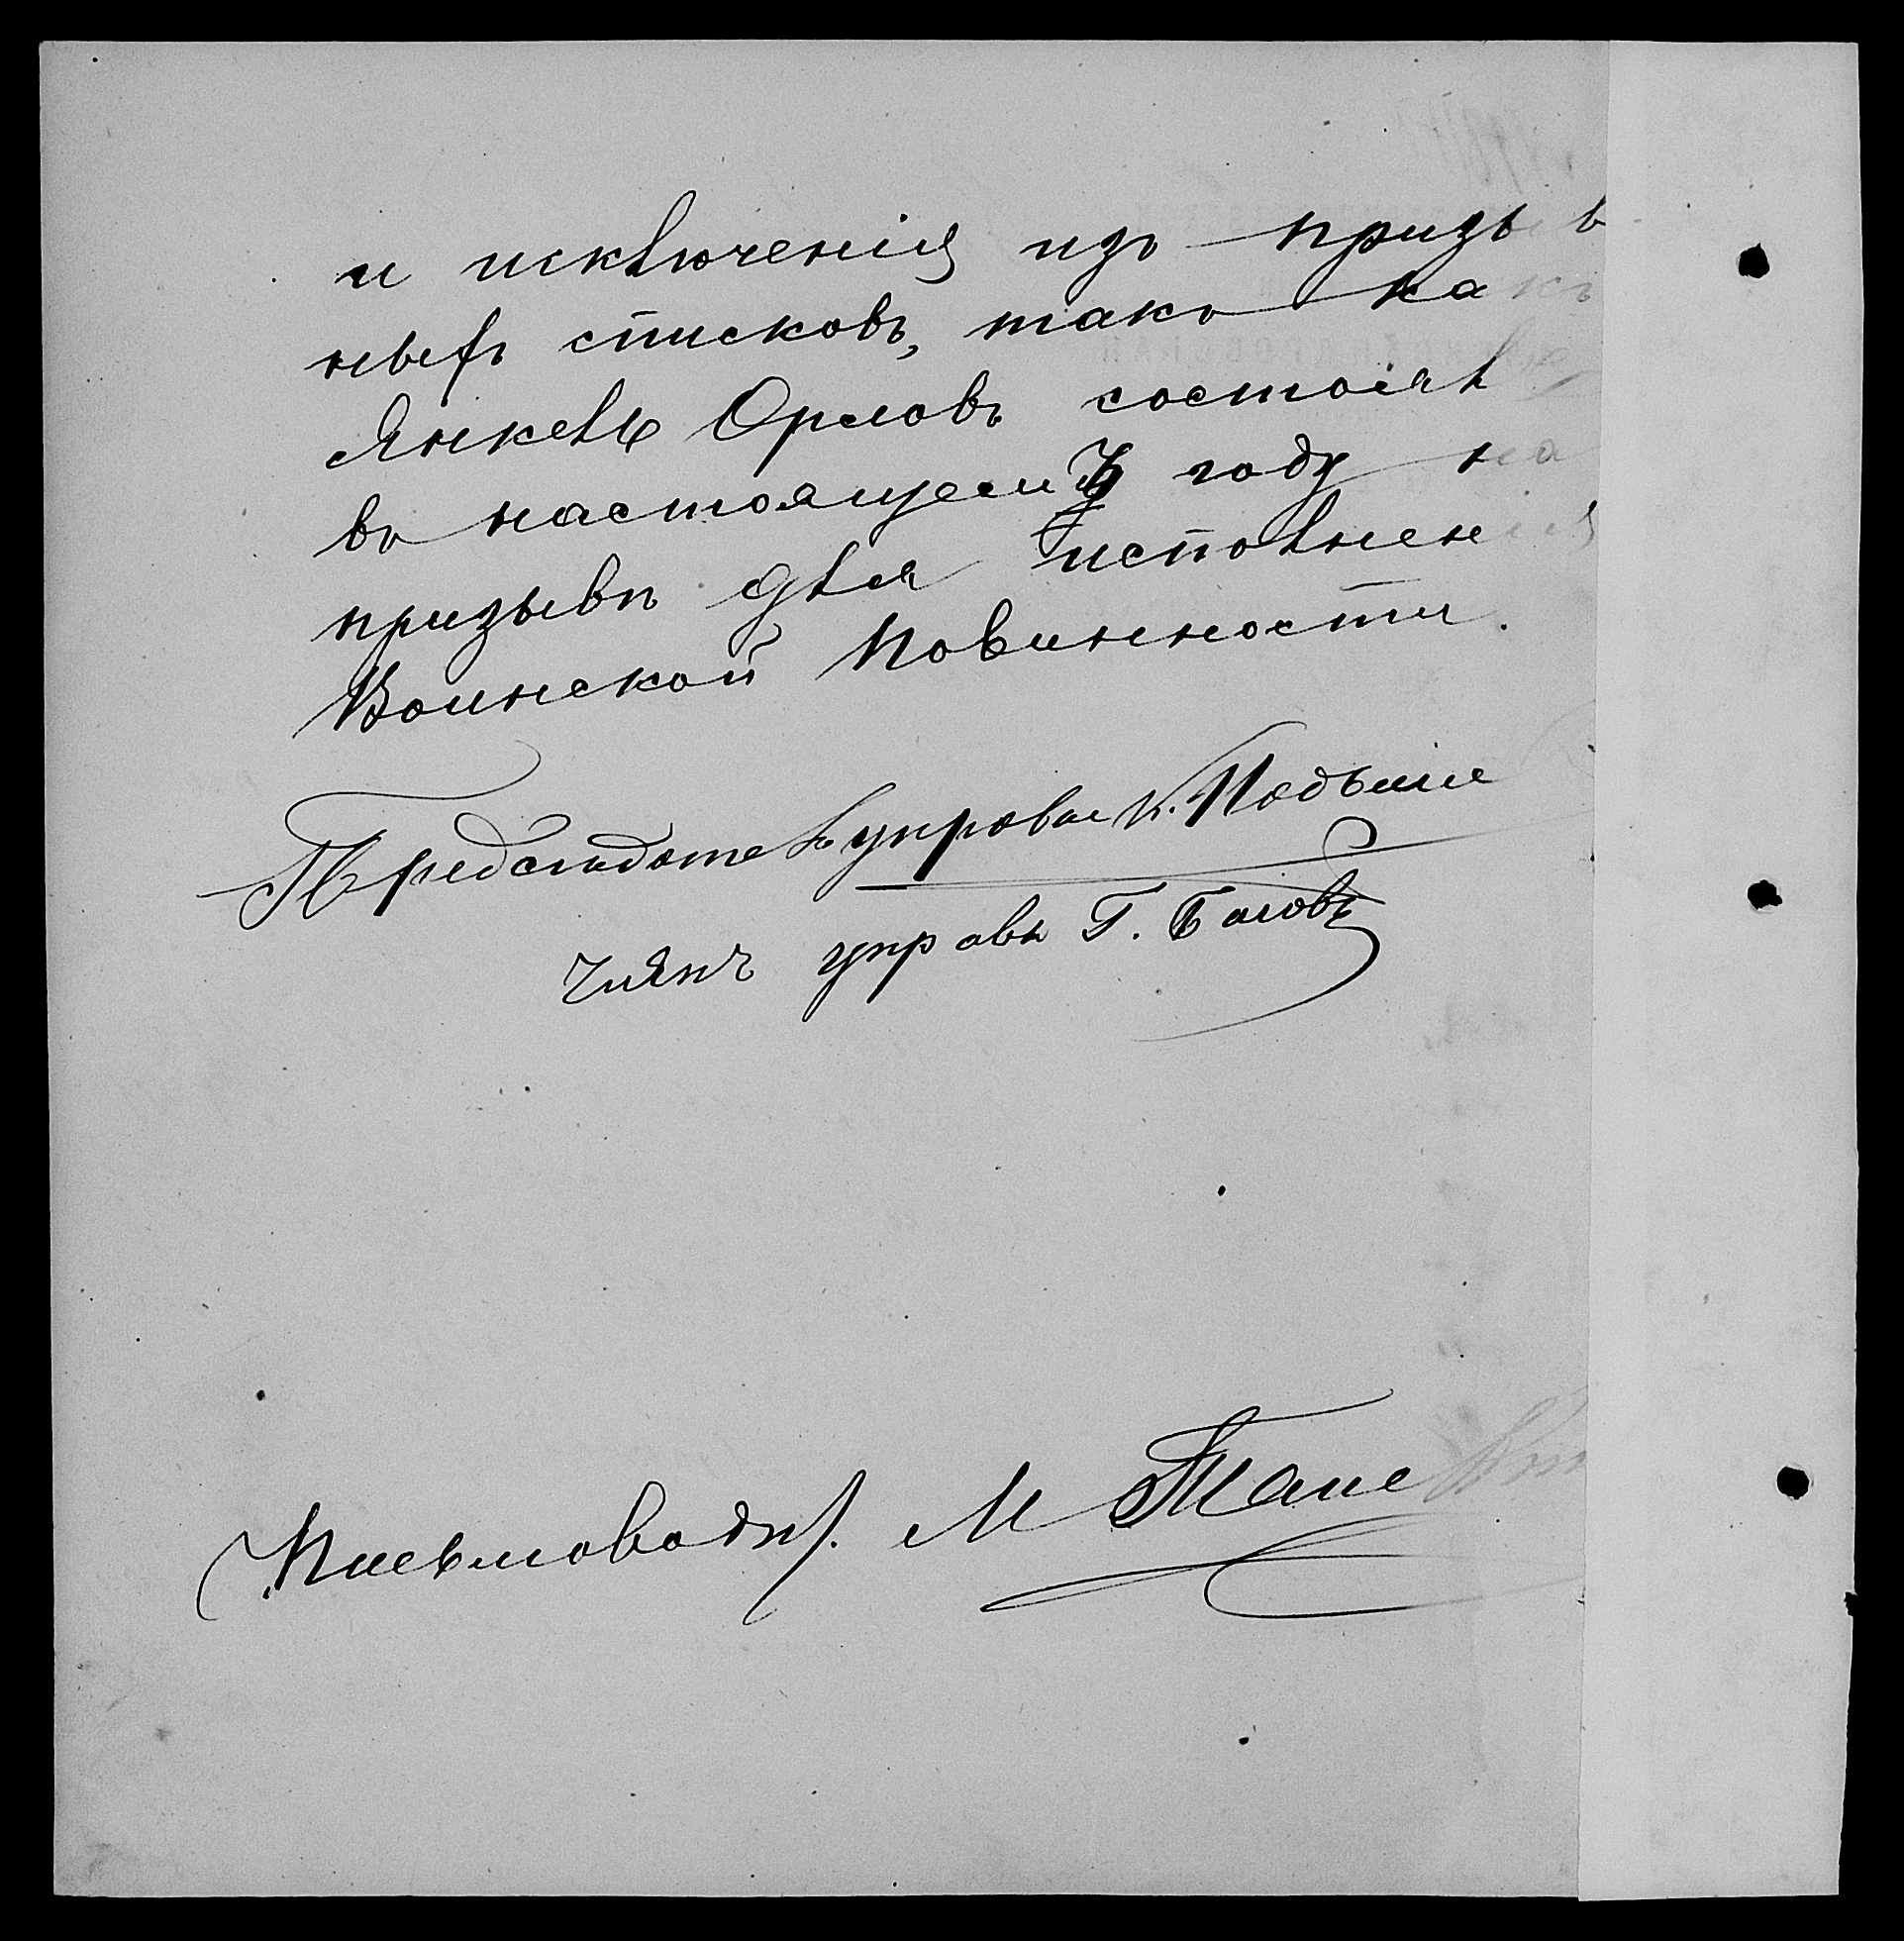 и исключенія изъ призыв
ныхъ списковъ, такъ какъ
Янкель Орловъ состоялъ
въ настоящемъ году на
призывѣ для исполненія
Воинской Повинности.
Предсѣдатель управы К.
членъ управы Г.
Письмоводит. М